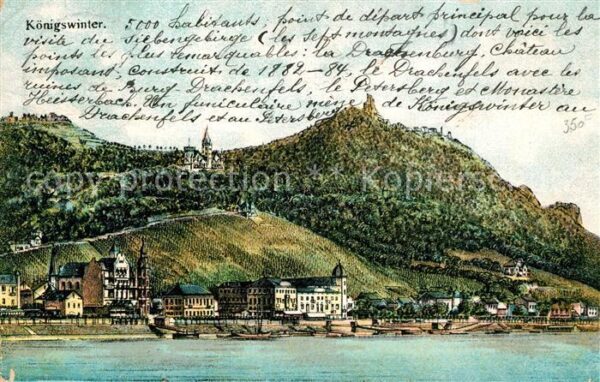 Königswinter. 5000 habitants, point de départ principal pour la
visite du Siebengebirge (les sept montagnes) dont voici les
points des plus remarquables: la Drachenburg, Château
imposant, construit de 1882-84, le Drachenfels avec les
ruines de Burg Drachenfels, le Petersberg et Monastère
Heisterbach. Un funiculaire mène de Königswinter au
Drachenfels et au Petersberg.
350